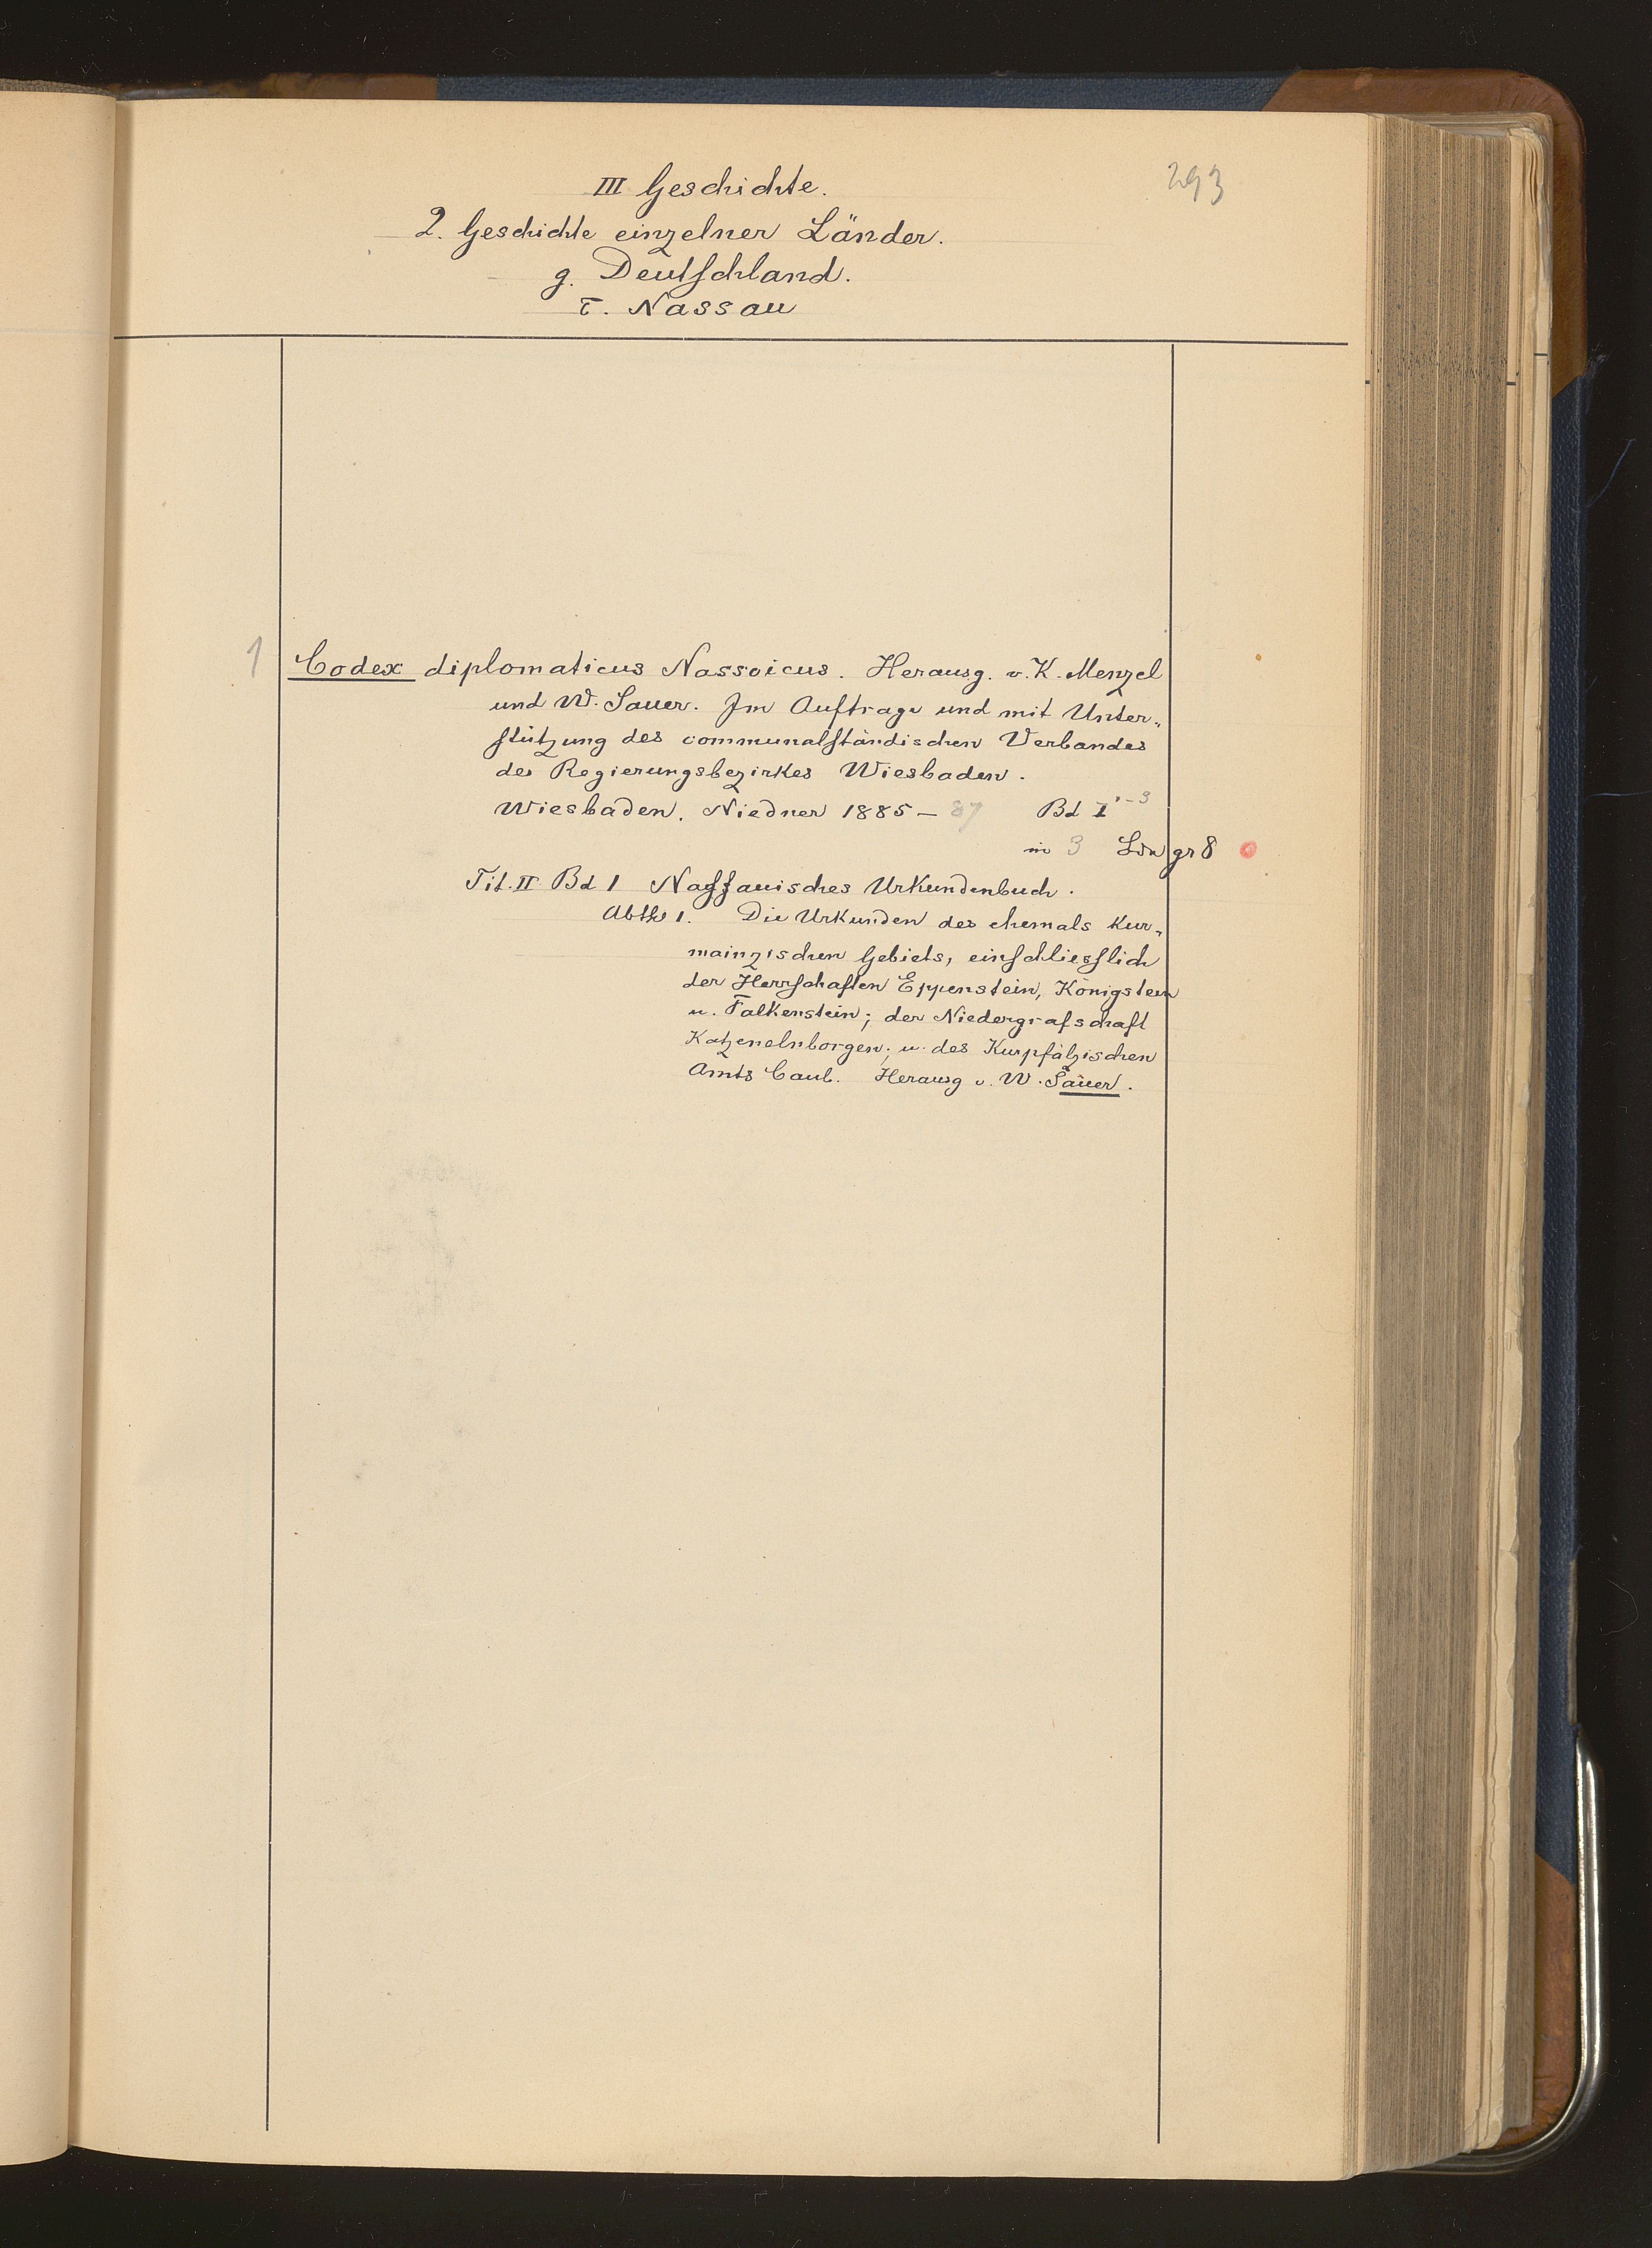 293
III Geschichte.
2. Geschichte einzelner Länder.
g. Deutschland.
τ. Nassau
1 Codex diplomaticus Nassoicus. Herausg. v. K. Menzel
und W. Sauer. Im Auftrage und mit Unter„
stützung des communalständischen Verbandes
des Regierungsbezirkes Wiesbaden.
Wiesbaden. Niedner 1885 – 87 Bd I 1–3
in 3 Ldn gr 8
Tit. II Bd 1 Nassauisches Urkundenbuch.
Abth 1. Die Urkunden des ehemals Kur„
mainzischen Gebiets, einschliesslich
der Herrschaften Eppenstein, Königstein
u. Falkenstein; der Niedergrafschaft
Katzenelnborgen; u. des Kurpfälzischen
Amts Caub. Herausg v. W. Sauer.